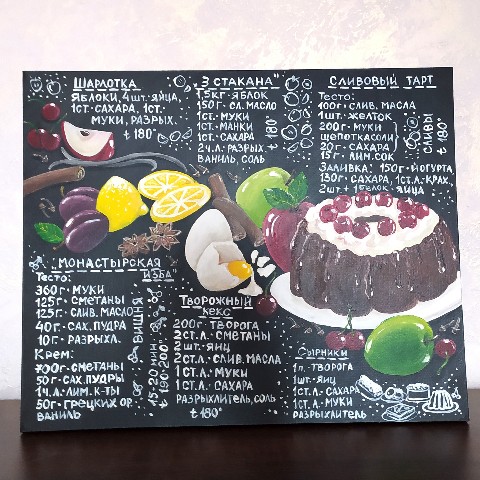 Шарлотка
Яблоки, 4шт. яйца,
1ст. сахара, 1ст.
муки, разрых.
t 180°
„3 стакана"
1,5кг. яблок
150г. сл. масло
1ст. муки
1ст. манки
1ст. сахара
2ч.л. разрых.
ваниль, соль
t 180°
Сливовый тарт
Тесто:
100г. слив. масла
1шт. желток
200г. муки
щепотка соли
20г. сахара
15г. лим. сок
сливы
t 180°
Заливка: 150г. йогурта,
130г. сахара, 1ст.л. крах.
2шт + 1белок. яйца
„Монастырская
изба"
Тесто:
360г. муки
125г. сметаны
125г. слив. масло
40г. сах. пудра
10г. разрыхл.
Крем:
700г. сметаны
50г. сах. пудры
1ч.л. лим. к-ты
50г. грецких ор.
ваниль
вишня
15-20 мин
t 190-200°
Творожный
кекс
200г. творога
2ст.л. сметаны
2шт. яиц
2ст.л. слив. масла
1ст.л. муки
1ст.л. сахара
разрыхлитель, соль
t 180°
Сырники
1п. творога
1шт. яиц
1ст.л. сахара
1ст.л. муки
разрыхлитель